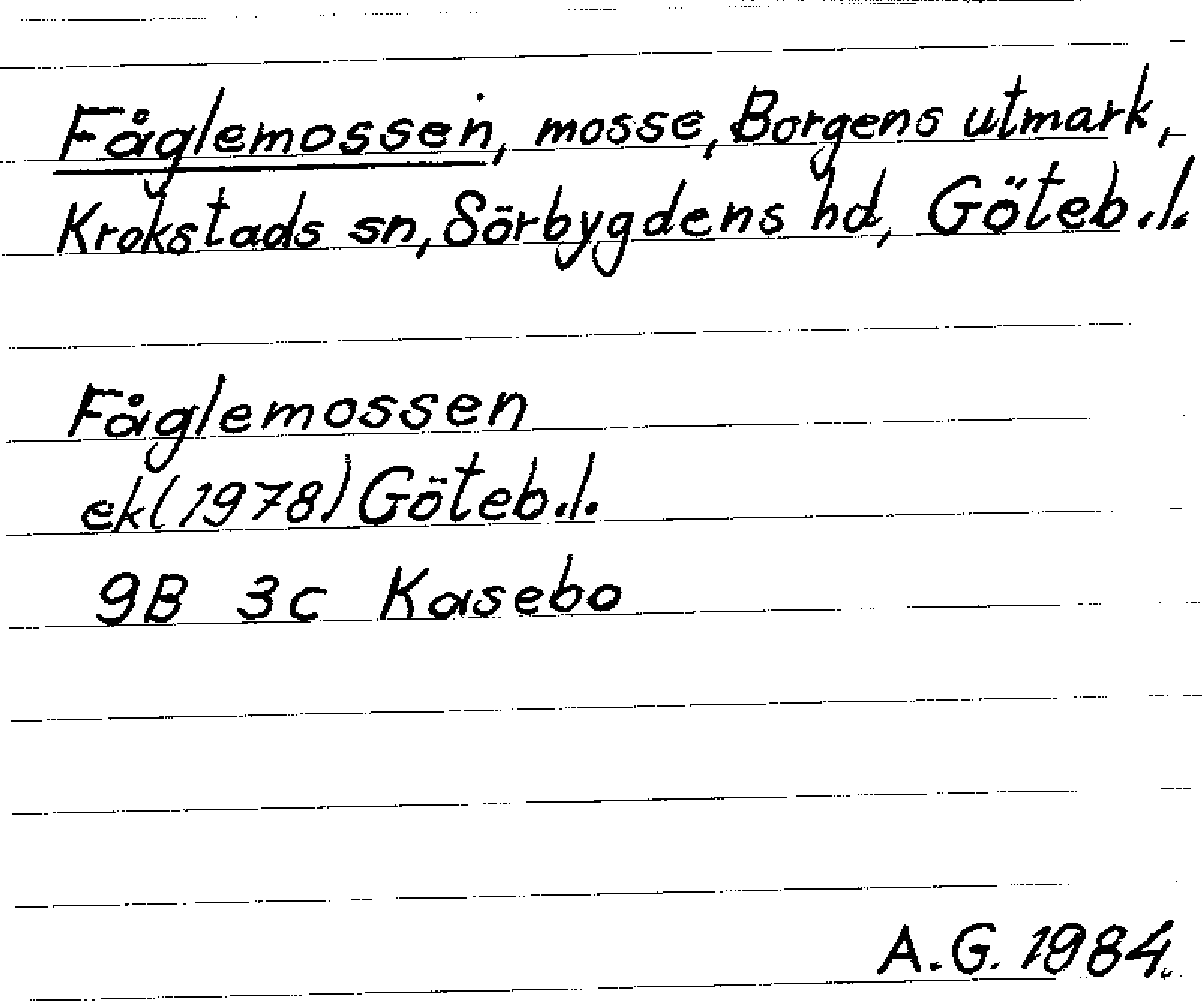 Fåglemossen, mosse, Borgens utmark,
Krokstads sn, Sörbygdens hd, Göteb.l.
Fåglemossen
ek(1978) Göteb.l.
9B 3c Kasebo
A.G. 1984.